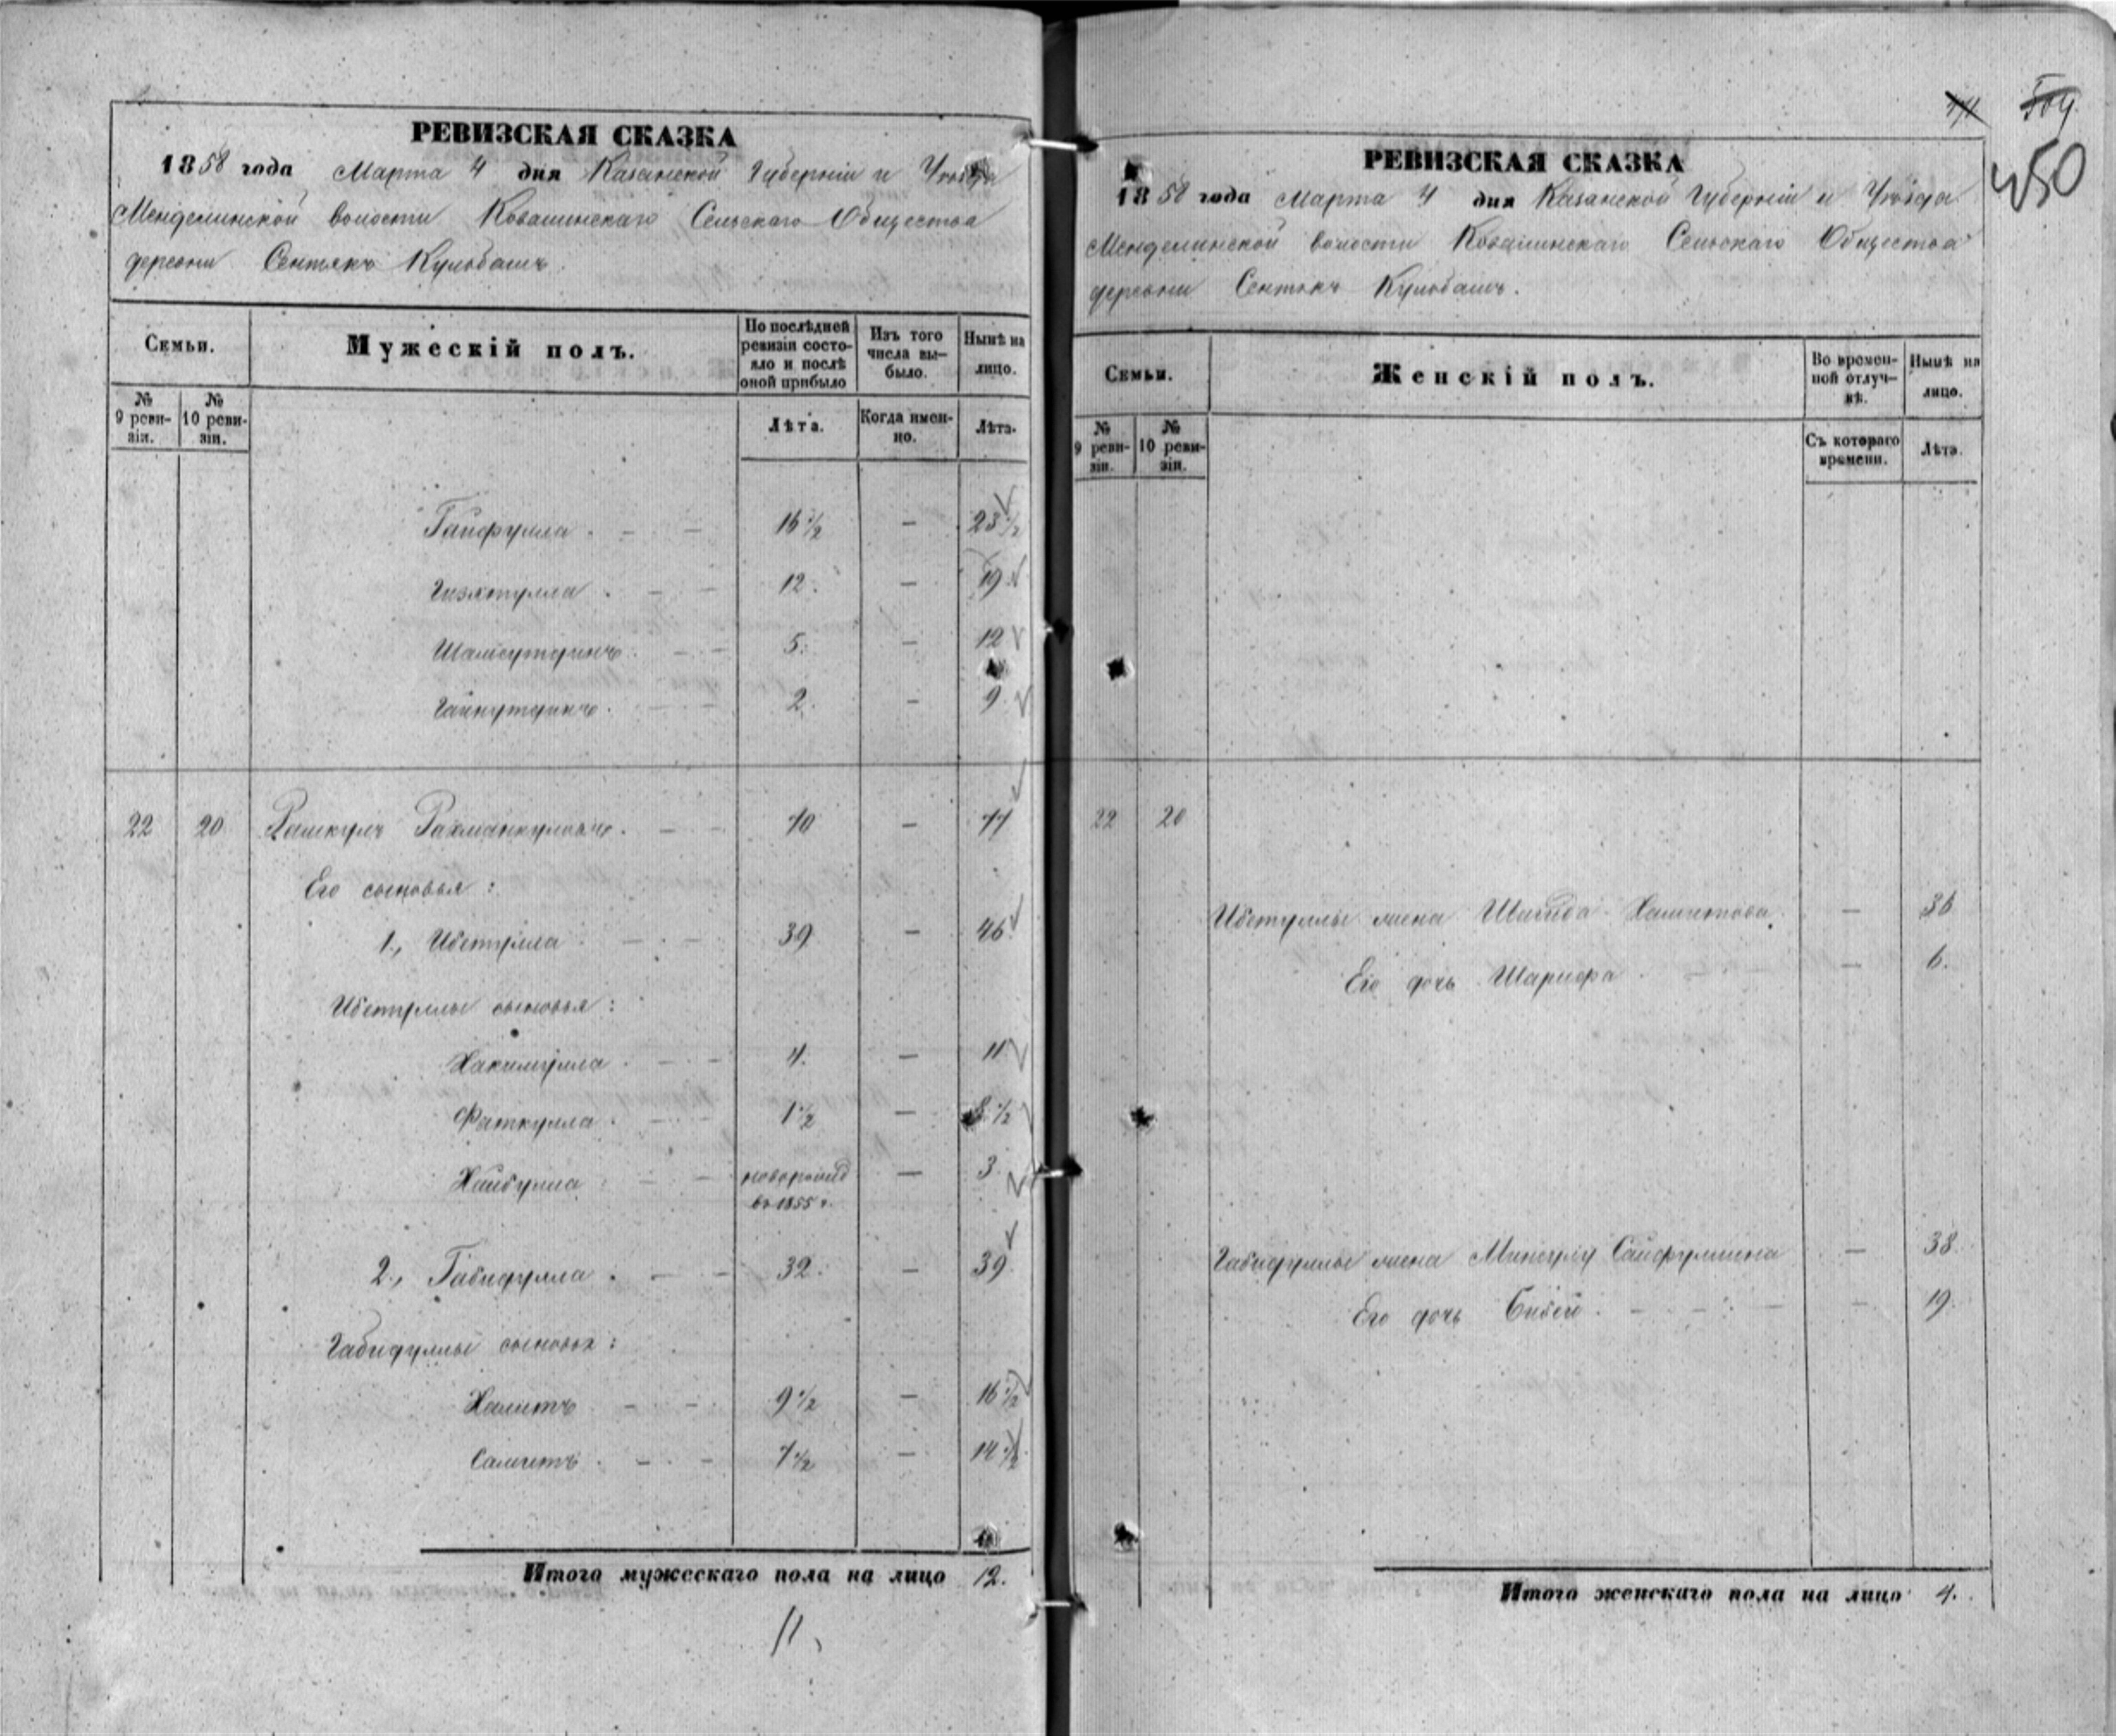 РЕВИЗСКАЯ СКАЗКА
1858 года Марта 4 дня Казанской Губерніи и Уѣзда
Менделинской волости Ковалинскаго Сельскаго Общества
деревни Сентякъ Кульбашъ.
Семьи.
Мужескій полъ.
По послѣдней ревизіи состояло и послѣ оной прибыло
Изъ того числа выбыло.
Нынѣ на лицо.
№ 9 ревизіи.
№ 10 ревизіи.
Лѣта.
Когда именно.
Лѣта.
Гайфулла . - - 16 1/2 — 23 1/2
Гизятулла . - - 12. — 19.
Шамсутдинъ. - - 5. — 12
Гайнутдинъ. - - 2. — 9.
22 20 Рахманкуловъ. - -
Его сыновья :
1., Ибетулла - - 39 — 46.
Ибетуллы сыновья :
Хакимулла . - - 4. — 11
Фаткулла . - - 1 1/2 — 8 1/2
Хайбулла . - - новорожд — 3
въ 1855 г.
2., Габидулла . - - 32. — 39.
Габидуллы сыновья :
Хамитъ - - 9 1/2 — 16 1/2
Самитъ . - - 7 1/2 — 14 1/2
Итого мужескаго пола на лицо 12.
11
504.
450
РЕВИЗСКАЯ СКАЗКА
1858 года Марта 4 дня Казанской Губерніи и Уѣзда
Менделинской волости Ковалинскаго Сельскаго Общества
деревни Сентякъ Кульбашъ.
Семьи.
Женскій полъ.
Во временной отлучкѣ.
Нынѣ на лицо.
№ 9 ревизіи.
№ 10 ревизіи.
Съ котораго времени.
Лѣта.
22 20
Ибетуллы жена Хамитова. — 36
Его дочь Шарифа . — 6.
Габидуллы жена Сайфуллина — 38.
Его дочь - - — 19.
Итого женскаго пола на лицо 4.